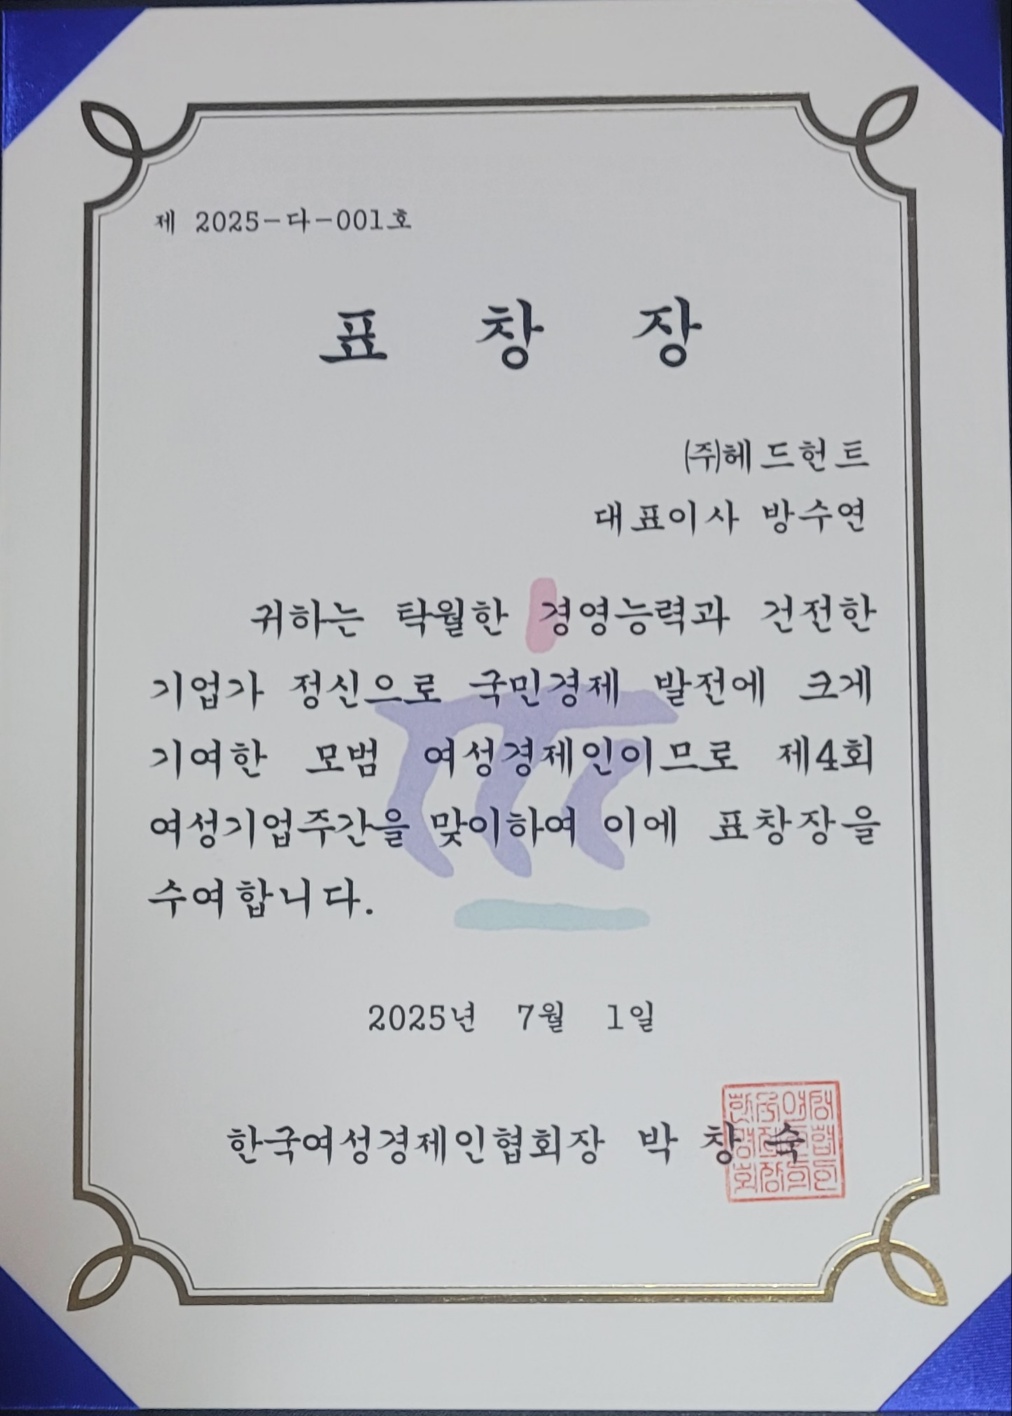 제 2025-다-001호
표 창 장
(주)헤드헌트
대표이사 방수연
귀하는 탁월한 경영능력과 건전한
기업가 정신으로 국민경제 발전에 크게
기여한 모범 여성경제인이므로 제4회
여성기업주간을 맞이하여 이에 표창장을
수여합니다.
2025년 7월 1일
한국여성경제인협회장 박 창 숙